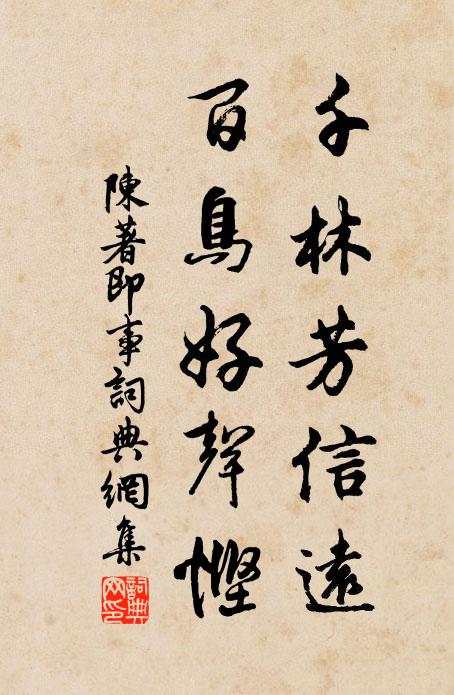 千林芳信遠
百鳥好聲慳
陳著即事詞典網集
詞典網印